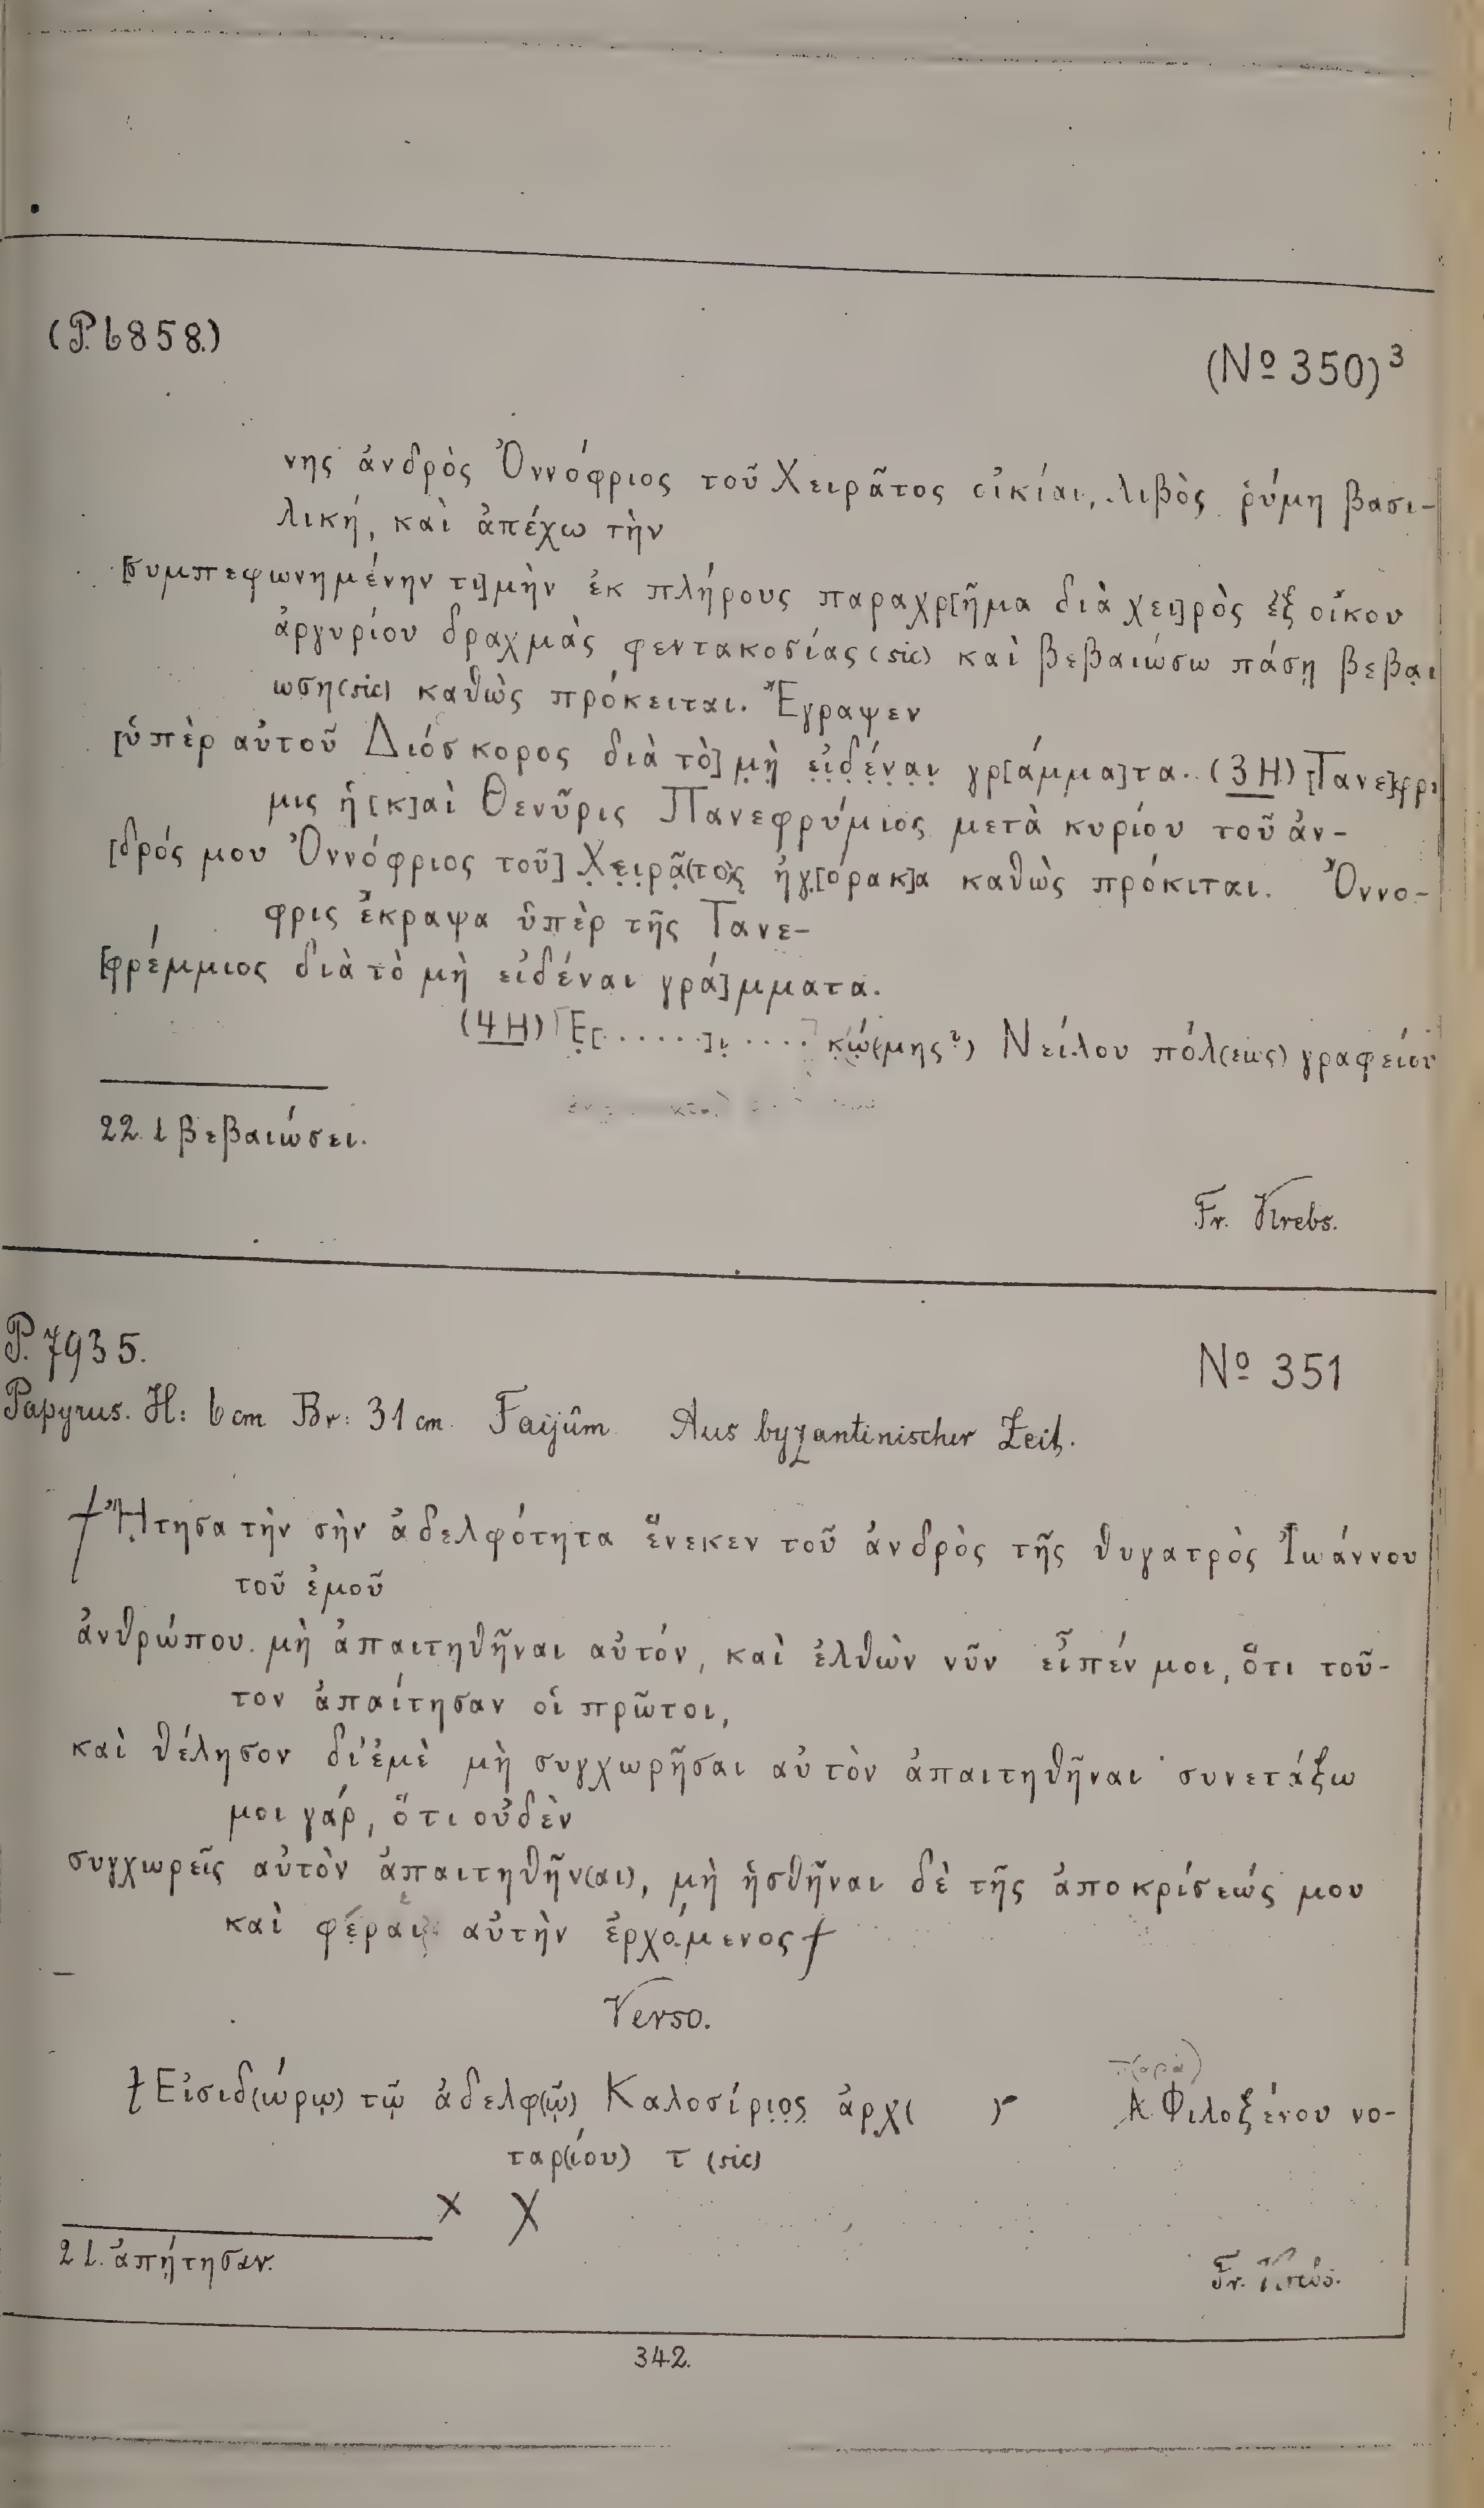 (P. 6858.)
(Nº 350)³
νης ἀνδρὸς Ὀννόφριος τοῦ Χειρᾶτος οἰκίαι, λιβὸς ῥύμη βασι-
λική, καὶ ἀπέχω τὴν
[συμπεφωνημένην τι]μὴν ἐκ πλήρους παραχρ[ῆμα διὰ χει]ρὸς ἐξ οἴκου
ἀργυρίου δραχμὰς φεντακοσίας (sic) καὶ βεβαιώσω πάσῃ βεβαι
ωση (sic) καθὼς πρόκειται. Ἔγραψεν
[ὑπὲρ αὐτοῦ Διόσκορος διὰ τὸ] μ̣ὴ̣ ε̣ἰ̣δ̣έ̣ν̣α̣ι̣ γρ[άμμα]τα. (3 H) [Τανε]φρι
μις ἡ [κ]αὶ Θενῦρις Πανεφρύμιος μετὰ κυρίου τοῦ ἀν-
[δρός μου Ὀννόφριος τοῦ] Χ̣ε̣ι̣ρ̣ᾶ̣(το)ς̣ ἠγ̣[όρακ]α καθὼς πρόκιται. Ὀννο-
φρις ἔκραψα ὑπὲρ τῆς Τανε-
[φρέμμιος διὰ τὸ μὴ εἰδέναι γρά]μματα.
(4 H) Ε̣[......]ι̣.... κ̣ώ̣(μης?) Νείλου πόλ(εως) γραφείου
22. l βεβαιώσει.
Fr. Krebs.
P. 7935.
Nº 351
Papyrus. H: 6 cm Br: 31 cm. Faijûm. Aus byzantinischer Zeit.
† Ἤ̣τησα τὴν σὴν ἀδελφότητα ἕνεκεν τοῦ ἀνδρὸς τῆς θυγατρὸς Ἰωάννου
τοῦ ἐμοῦ
ἀνθρώπου. μὴ ἀπαιτηθῆναι αὐτόν, καὶ ἐλθὼν νῦν εἶπέν μοι, ὅτι τοῦ-
τον ἀπαίτησαν οἱ πρῶτοι,
καὶ θέλησον δι' ἐμὲ μὴ συγχωρῆσαι αὐτὸν ἀπαιτηθῆναι· συνετάξω
μοι γάρ, ὅτι οὐδὲν
συγχωρεῖς αὐτὸν ἀπαιτηθῆν(αι), μὴ ἡσθῆναι δὲ τῆς ἀποκρίσεώς μου
καὶ αὐτὴν ἐρχόμενος †
Verso.
† Εἰσιδ(ώρῳ) τῷ ἀδελφ(ῷ) Καλοσίρι̣ο̣ς̣ ἀρχ( ) π(αρὰ) Φιλοξένου νο-
ταρ(ίου) τ (sic)
× Χ
2 l. ἀπῄτησαν.
Fr. Krebs.
342.